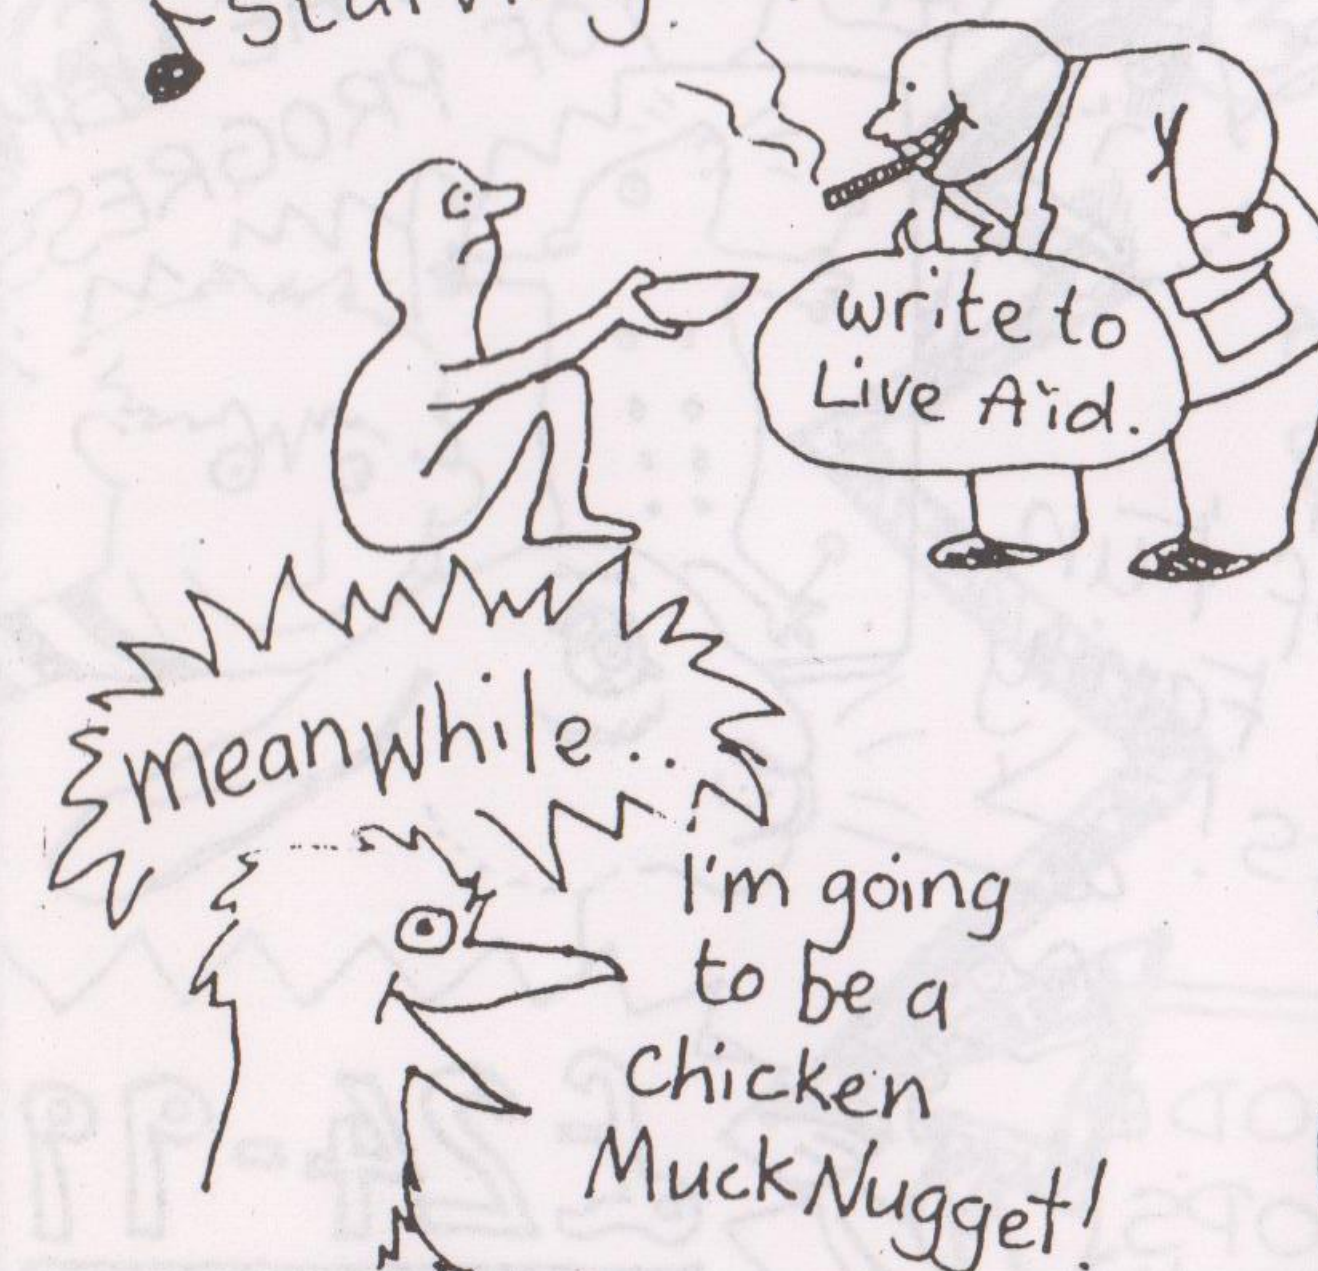 starving.
write to
Live Aid.
meanwhile..
I'm going
to be a
Chicken
Muck Nugget!